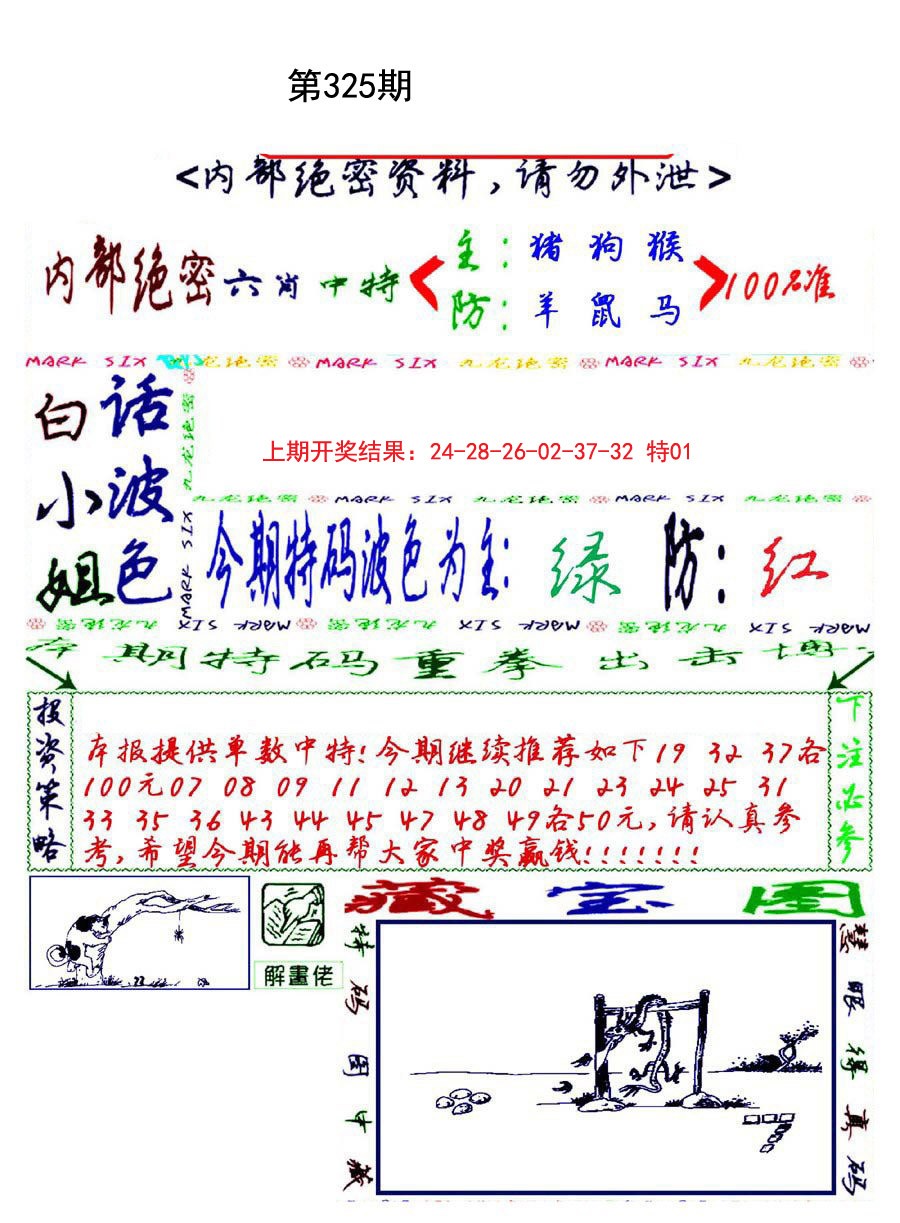 第325期
<内部绝密资料,请勿外泄>
内部绝密六肖中特
主:猪 狗 猴
防:羊 鼠 马
100%准
MARK SIX 九龙绝密 MARK SIX 九龙绝密 MARK SIX 九龙绝密
白小姐
话波色
九龙绝密 MARK SIX
上期开奖结果：24-28-26-02-37-32 特01
九龙绝密 MARK SIX 九龙绝密 MARK SIX 九龙绝密
今期特码波色为主:绿 防:红
九龙绝密 MARK SIX 九龙绝密 MARK SIX 九龙绝密 MARK SIX
本期特码重拳出击
投资策略
本报提供单数中特!今期继续推荐如下19 32 37各
100元07 08 09 11 12 13 20 21 23 24 25 31
33 35 36 43 44 45 47 48 49各50元,请认真参
考,希望今期能再帮大家中奖赢钱!!!!!!!
下注必参
解畫佬
藏宝图
特码图中藏
慧眼得真码